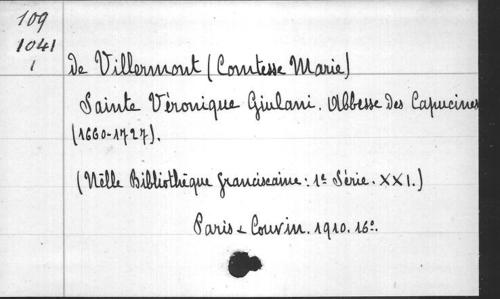 109
1041
1
de Villermont (Comtesse Marie)
Sainte Véronique Giulani. Abbesse des Capucines
(1660-1727).
(Nelle Bibliothèque franciscaine: 1e Série. XXI.)
Paris & Couvin. 1910. 16o.